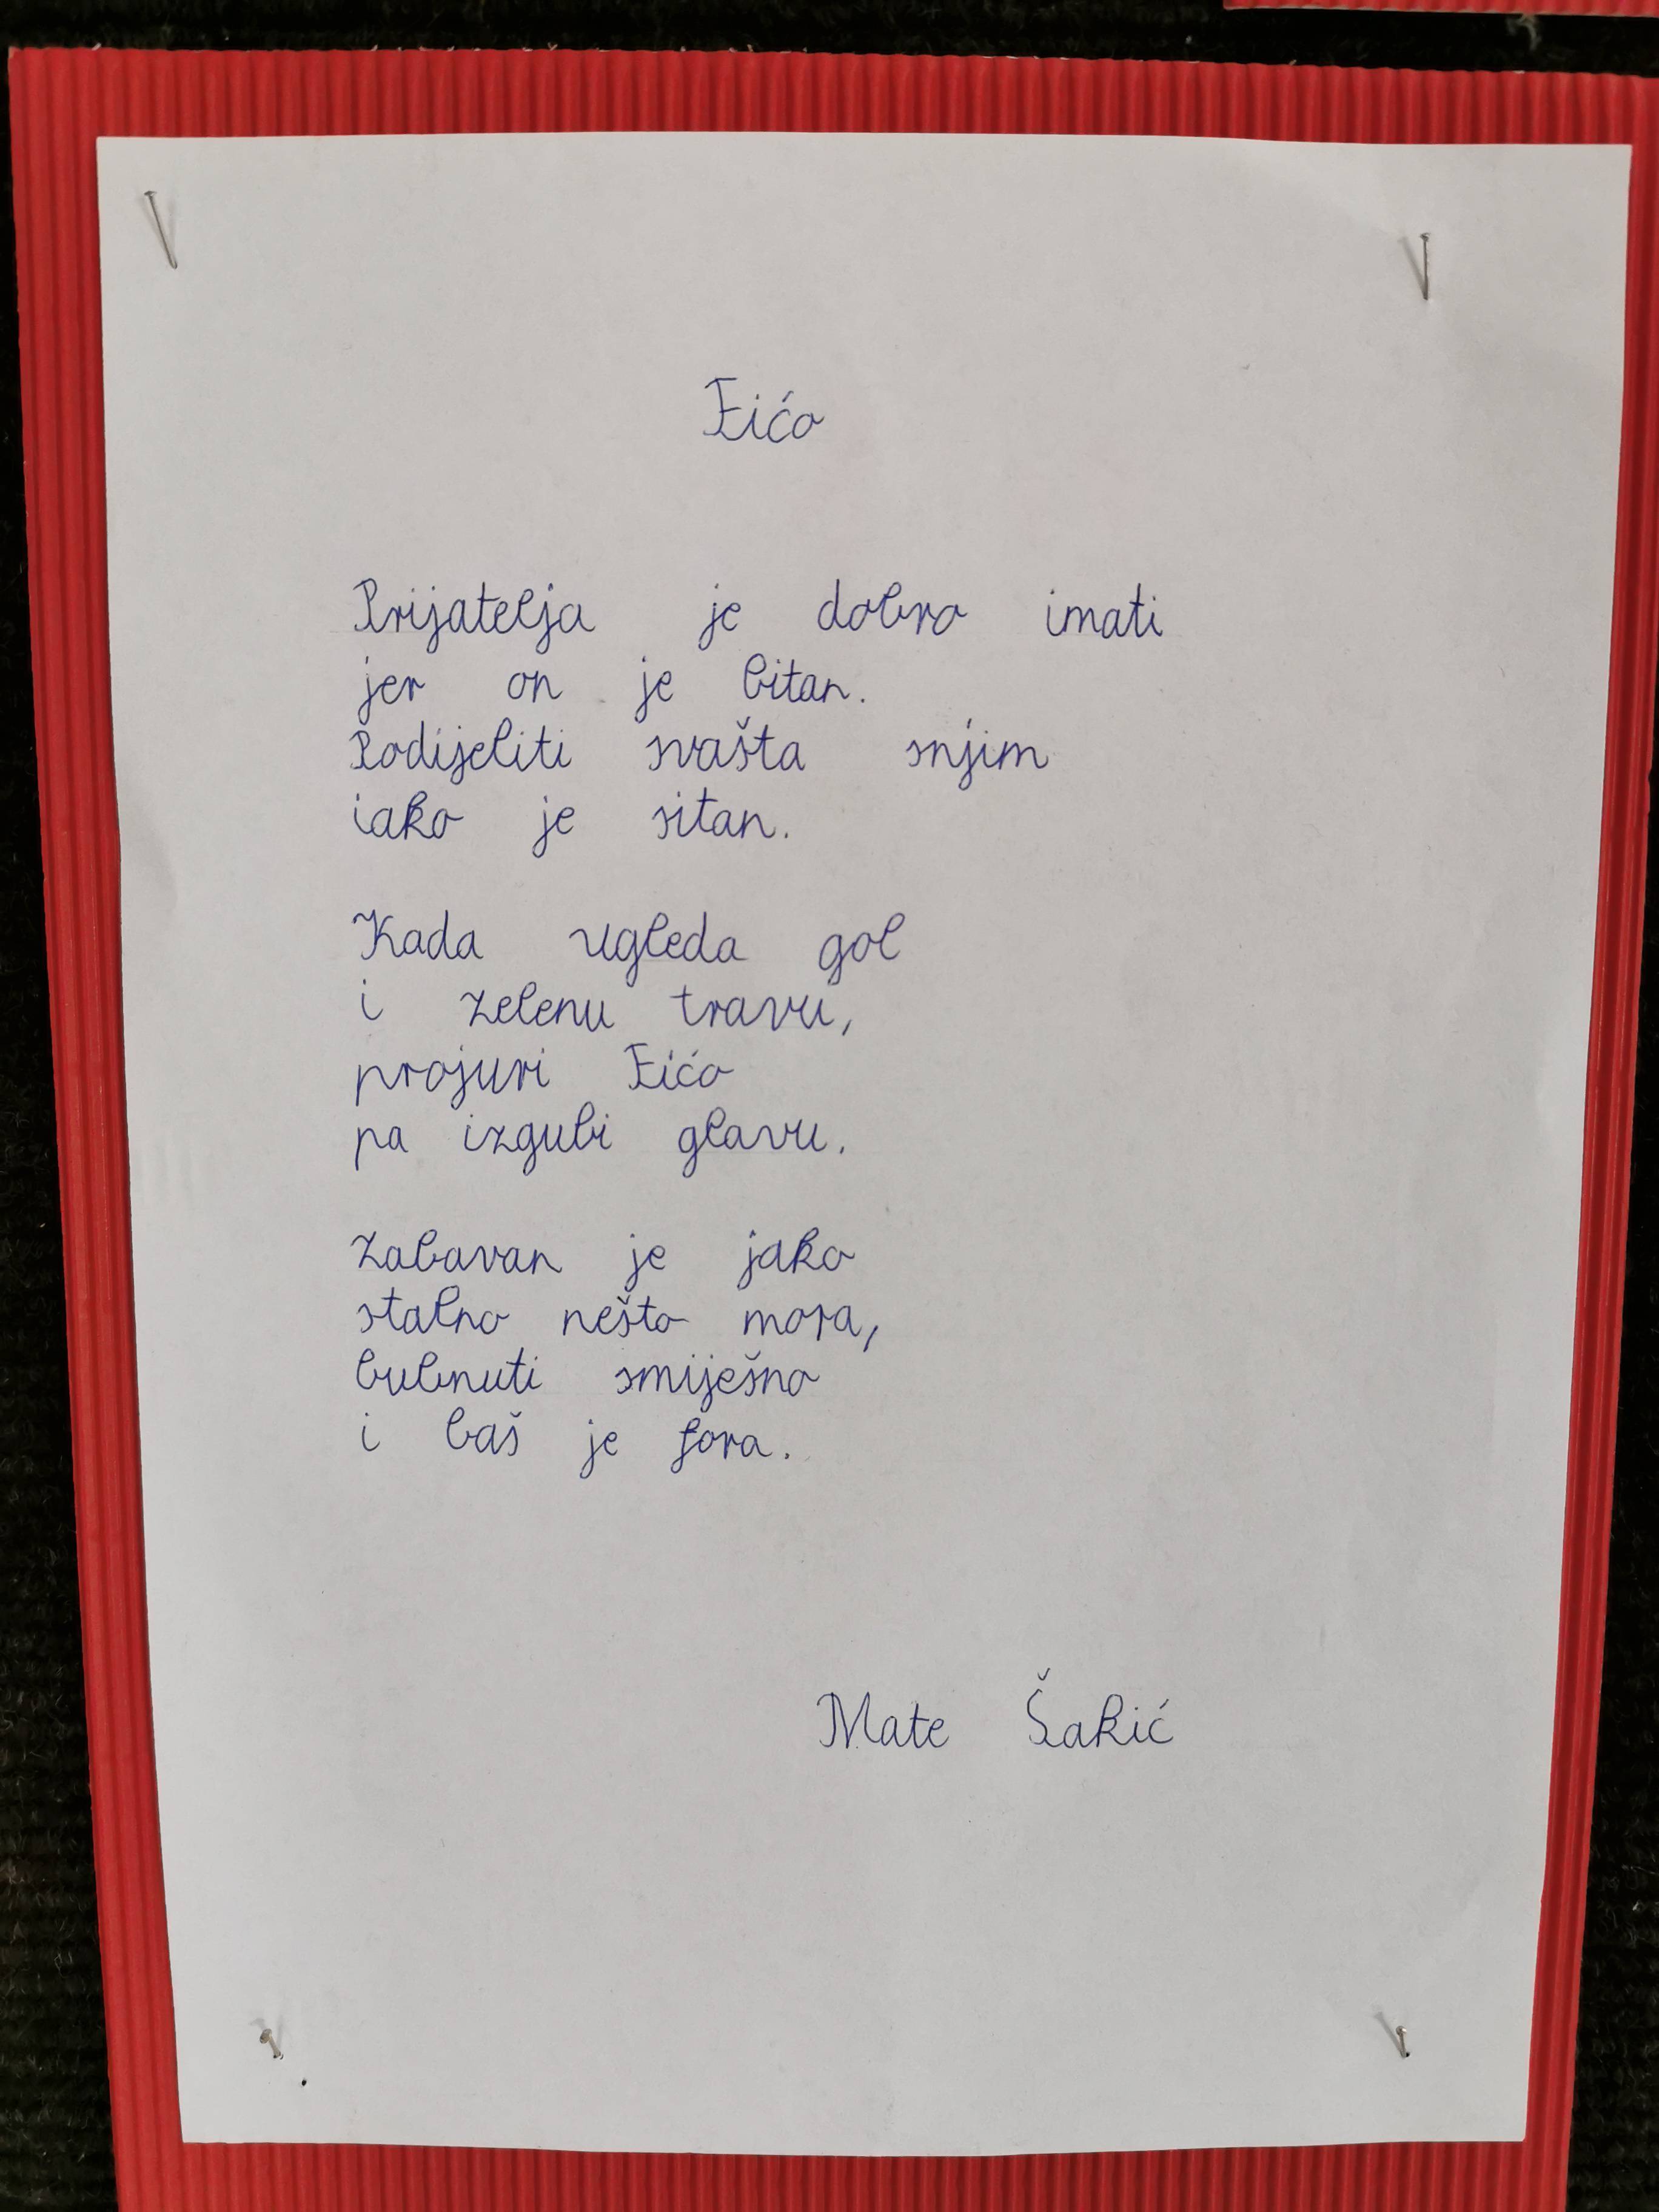 Fićo
Prijatelja je dobro imati
jer on je bitan.
Podijeliti svašta snjim
iako je sitan.
Kada ugleda gol
i zelenu travu,
projuri Fićo
pa izgubi glavu.
Zabavan je jako
stalno nešto mora,
bubnuti smiješno
i baš je fora.
Mate Šakić